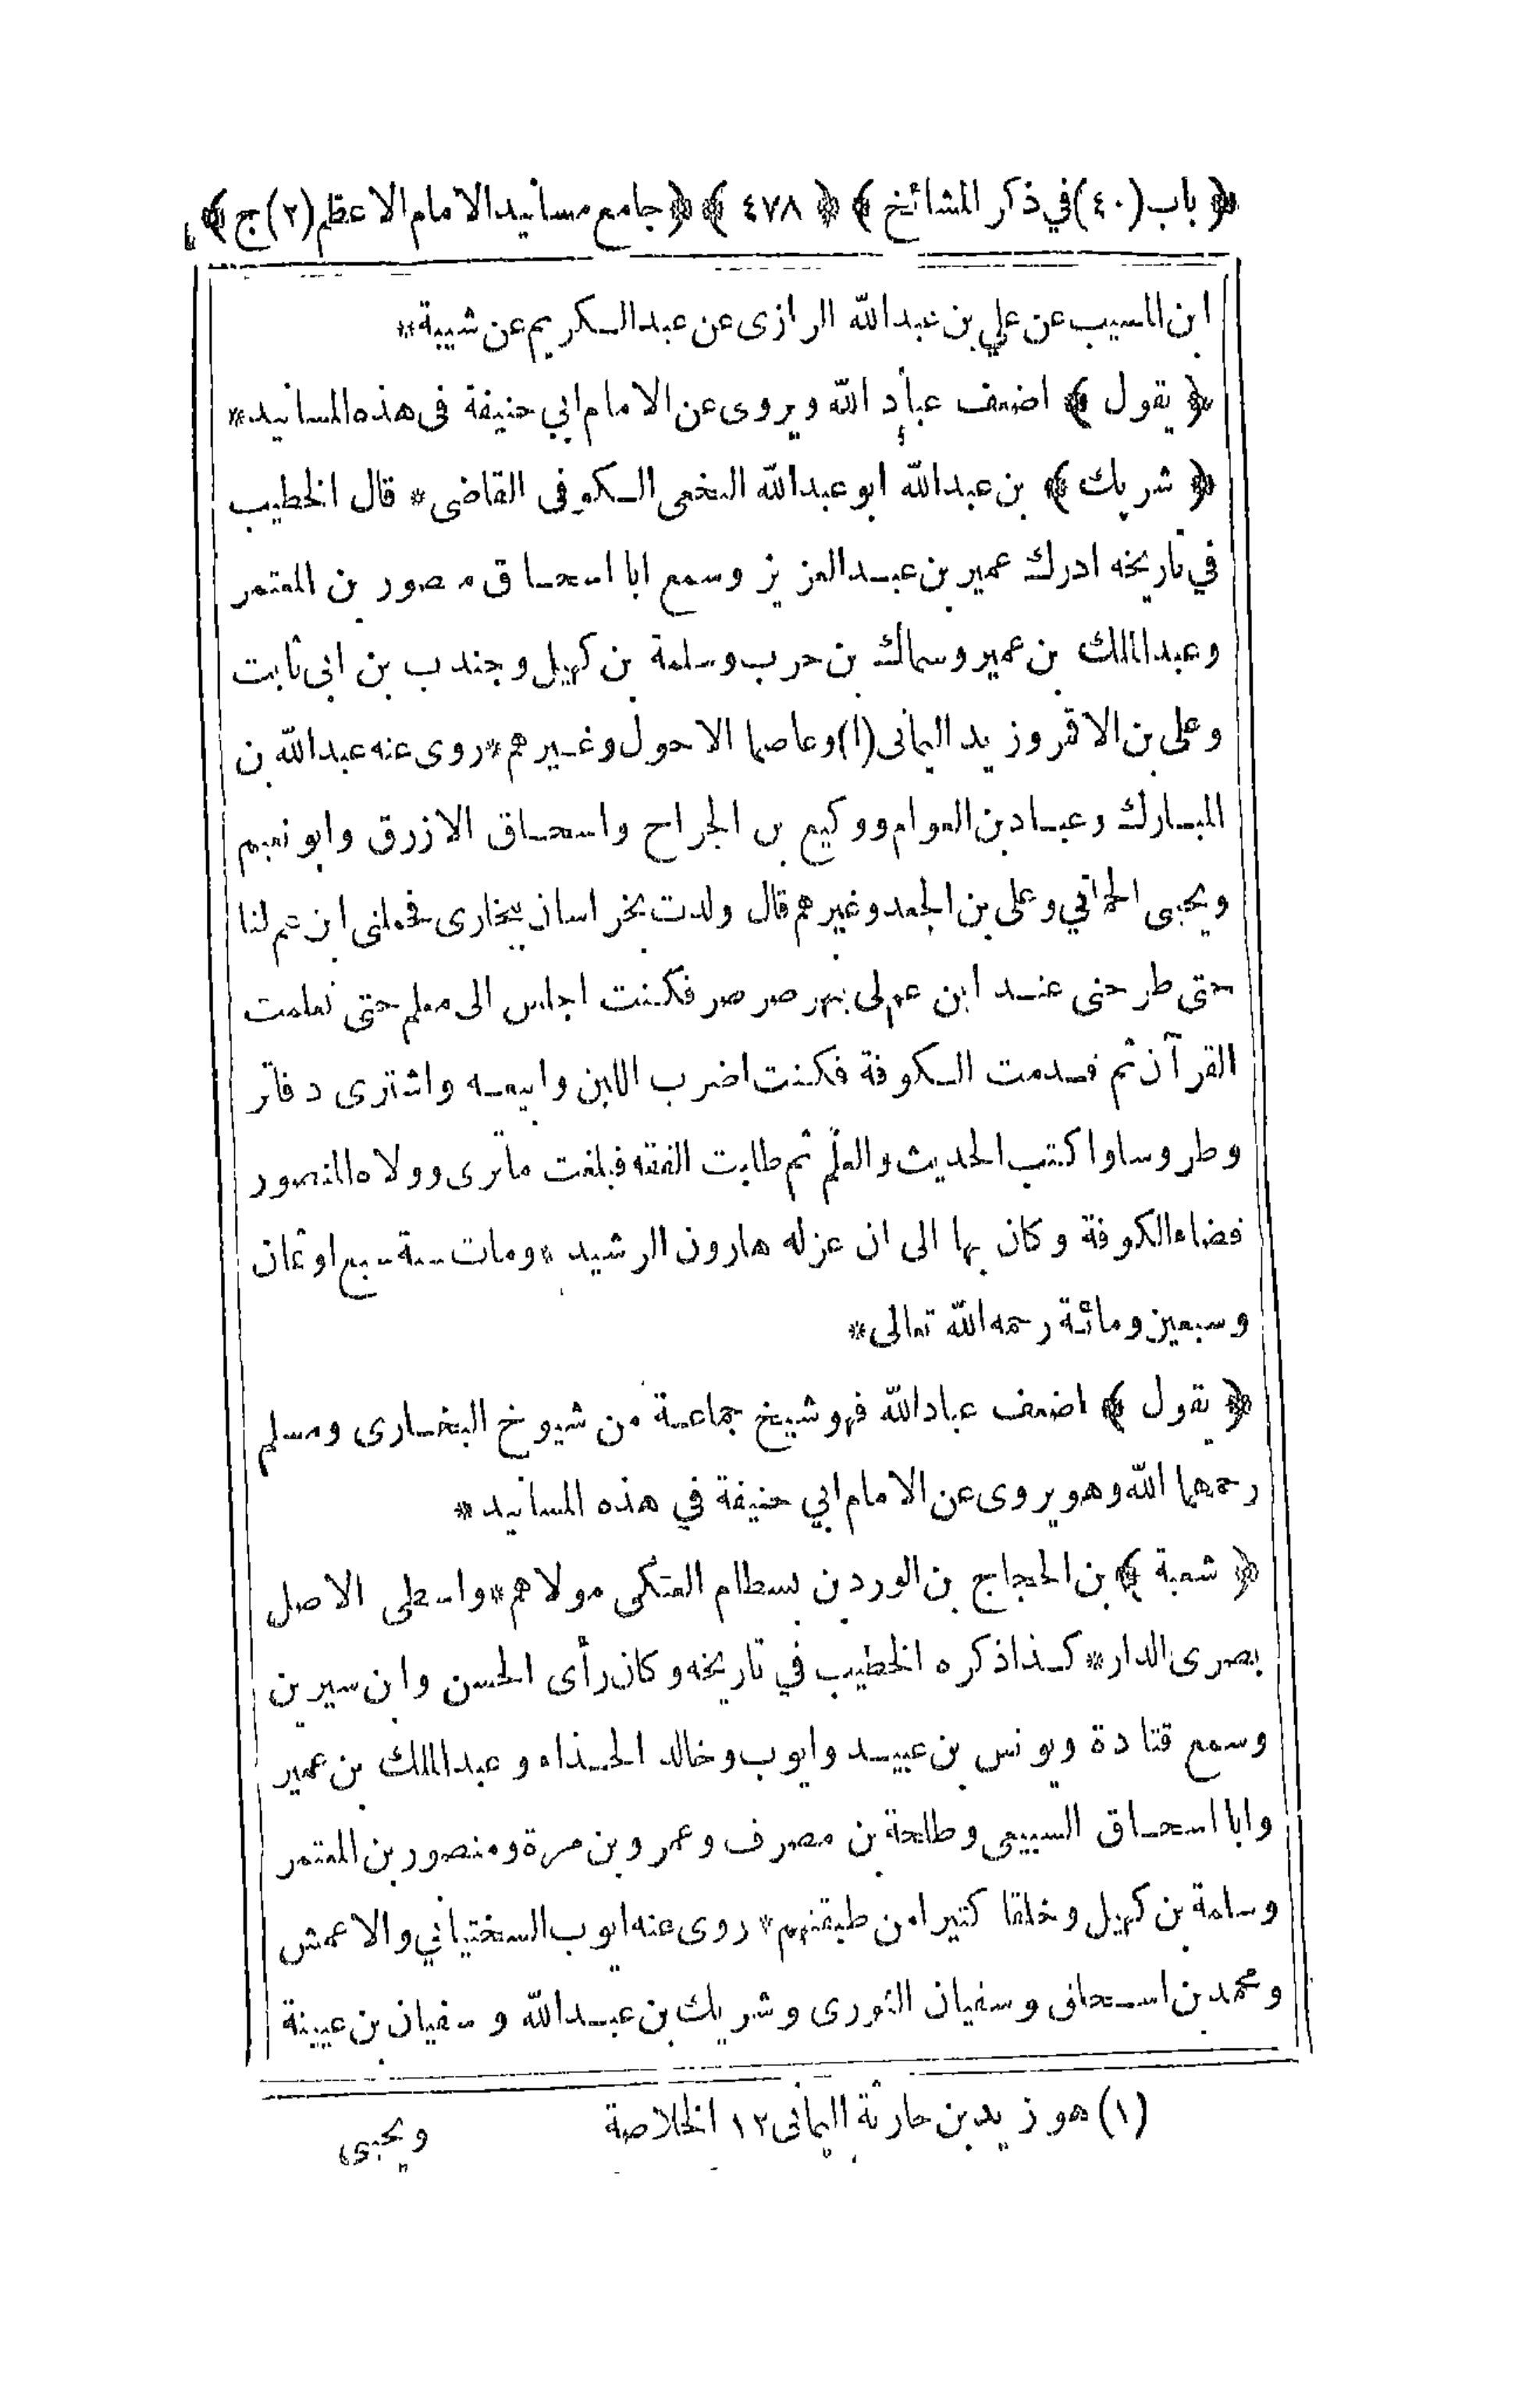 ﴿ باب (٤٠) في ذكر المشائخ ﴾ ﴿ ٤٧٨ ﴾ ﴿ جامع مسانيد الامام الاعظم (٢) ج ﴾
ابن المسيب عن علي بن عبدالله الرازى عن عبدالكريم عن شيبة*
﴿ يقول ﴾ اضعف عباد الله ويروى عن الامام ابي حنيفة فى هذه المسانيد*
﴿ شريك ﴾ بن عبدالله ابو عبدالله النخعى الكوفى القاضى* قال الخطيب
في تاريخه ادرك عمير بن عبد العزيز وسمع ابا اسحاق منصور بن المعتمر
وعبدالملك بن عمير وسماك بن حرب وسلمة بن كهيل وجندب بن ابى ثابت
وعلى بن الاقمر وزيد اليمانى (١) وعاصما الاحول وغيرهم* روى عنه عبدالله بن
المبارك وعباد بن العوام ووكيع بن الجراح واسحاق الازرق وابو نعيم
ويحيى الحمانى وعلى بن الجعد وغيرهم قال ولدت بخراسان ببخارى فحملنى ابن عم لنا
حتى طرحنى عند ابن عم لى بنهر صرصر فكنت اجلس الى معلم حتى تعلمت
القرآن ثم قدمت الكوفة فكنت اضرب اللبن وابيعه واشترى دفاتر
وطروسا واكتب الحديث والعلم ثم طلبت الفقه فبلغت ماترى وولاه المنصور
قضاء الكوفة وكان بها الى ان عزله هارون الرشيد* ومات سنة سبع او ثمان
وسبعين ومائة رحمه الله تعالى*
﴿ يقول ﴾ اضعف عبادالله فهو شيخ جماعة من شيوخ البخارى ومسلم
رحمهما الله وهو يروى عن الامام ابي حنيفة في هذه المسانيد*
﴿ شعبة ﴾ بن الحجاج بن الورد بن بسطام العتكى مولاهم* واسطى الاصل
بصرى الدار* كذا ذكره الخطيب في تاريخه وكان رأى الحسن وابن سيرين
وسمع قتادة ويونس بن عبيد وايوب وخالد الحذاء وعبدالملك بن عمير
وابا اسحاق السبيعى وطلحة بن مصرف وعمرو بن مرة ومنصور بن المعتمر
وسلمة بن كهيل وخلقا كثيرا من طبقتهم* روى عنه ايوب السختيانى والاعمش
ومحمد بن اسحاق وسفيان الثورى وشريك بن عبدالله وسفيان بن عيينة
(١) هو زيد بن حارثة اليمانى ١٢ الخلاصة
ويحيى